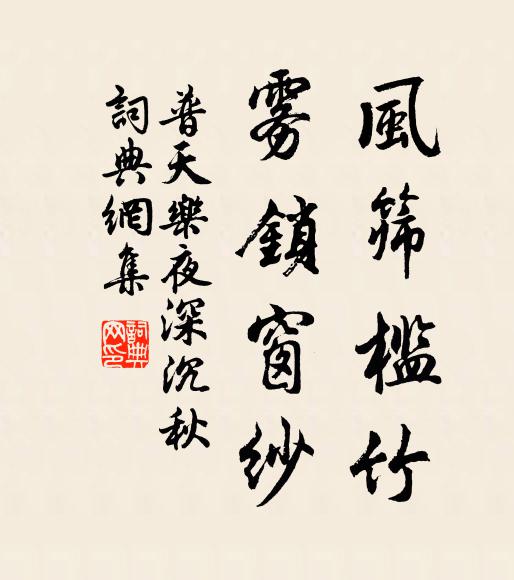 風篩檻竹
雾鎖窗紗
普天樂夜深沉秋
詞典網集
詞典網印